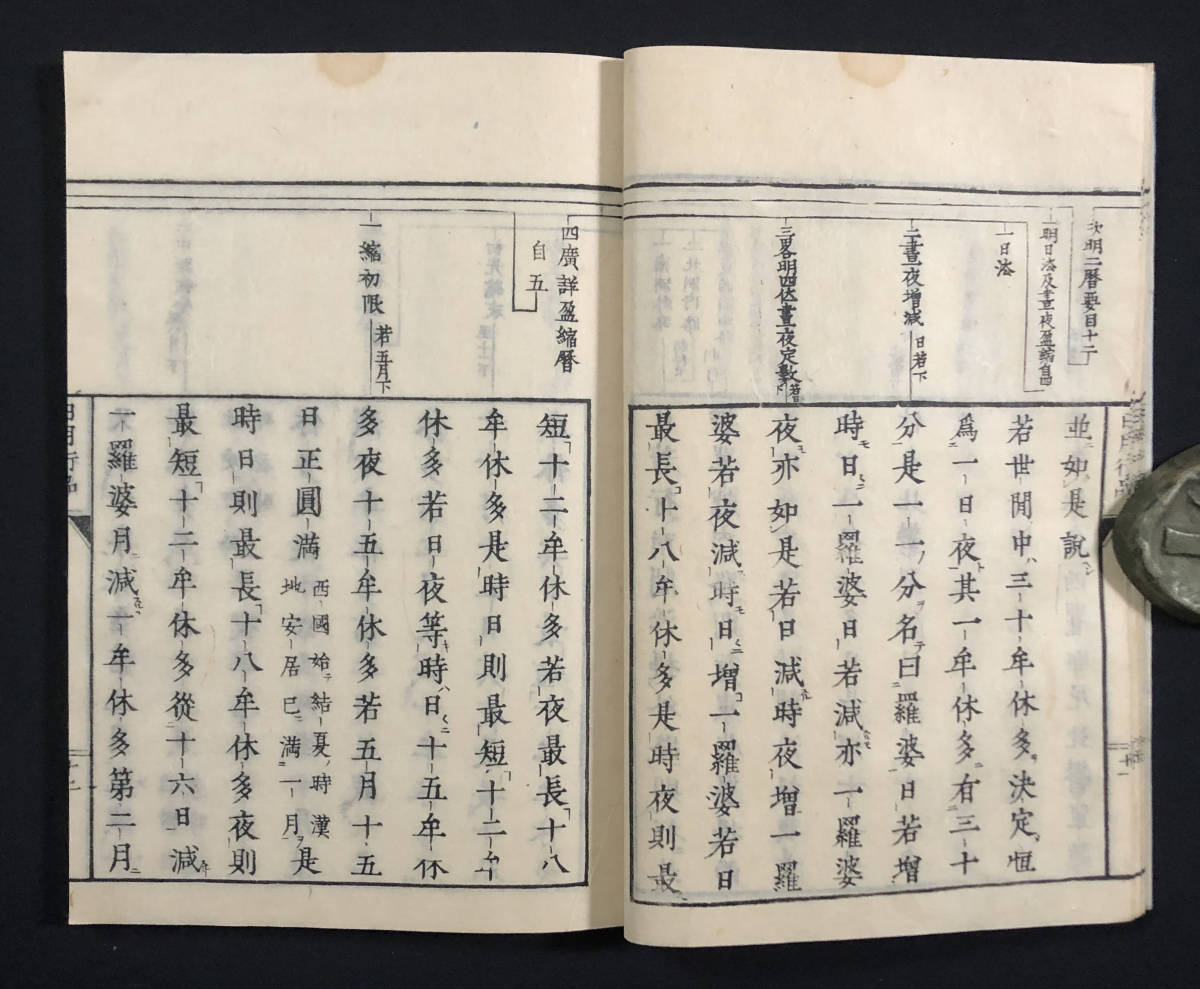 次明二暦要目十二
一明日法及晝夜盈縮自四
一日法
二晝夜增減 日若下
三畧明四伏晝夜定數 若日下
並如是說
若世間中三十牟休多決定恒
爲一日夜其一牟休多有三十
分是一一分名曰羅婆日若增
時日一羅婆日若減亦一羅婆
夜亦如是若日減時夜增一羅
婆若夜減時日增一羅婆若日
最長十八牟休多是時夜則最
四廣詳盈縮暦
自五
一縮初限 若五月下
短十二牟休多若夜最長十八
牟休多是時日則最短十二牟
休多若日夜等時日十五牟休
多夜十五牟休多若五月十五
日正圓滿 西國始結夏時漢
地安居已滿一月 是
時日則最長十八牟休多夜則
最短十二牟休多從十六日減
一羅婆月減一牟休多第二月
日月行品